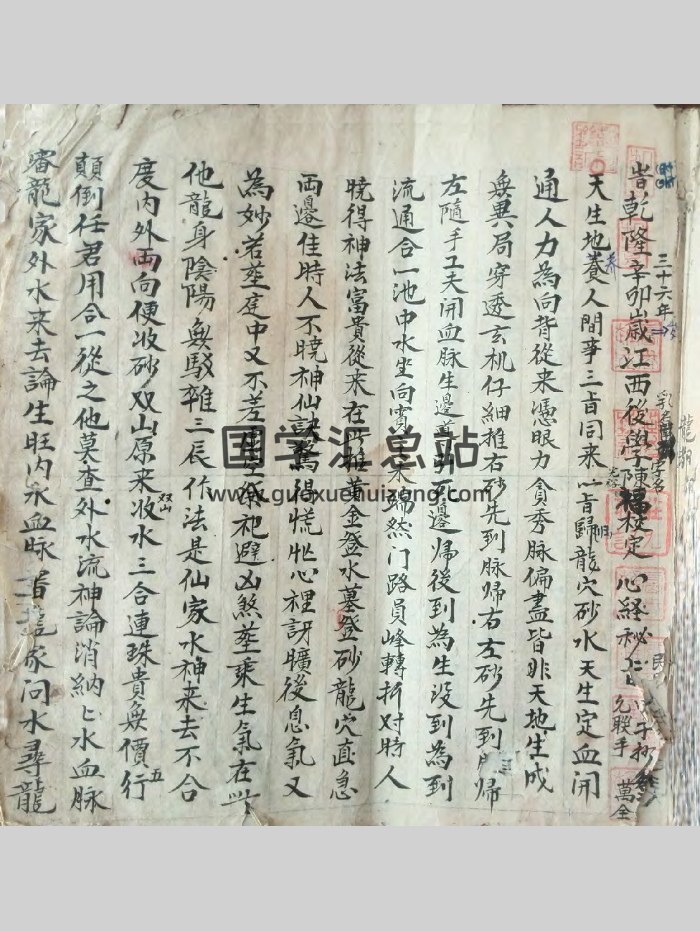 旹乾隆辛卯歲江西後學陳福校定 心経秘
三十六年
元朕手
萬全
天生地養人間事三旨同来以旨歸龍穴砂水天生定血開
通人力為向背從来憑眼力貪秀脉偏盡皆非天地生成
無異局穿透玄机仔細推右砂先到脉歸右左砂先到脉歸
左隨手工夫開血脉生邊 死邊歸後到為生没到為到
流通合一池中水坐向 端然门路員峰轉折对時人
曉得神法富貴從来在 黄金登水墓登砂龍穴直急
両邊佳時人不曉神仙訣驚得慌忙心裡訝曠後息氣又
為妙若塟庭中又不差 祭祀避凶煞塟乘生氣在
他龍身陰陽無駁雜三辰作法是仙家水神来去不合
度内外両向便收砂双山原来收水三合連珠貴無價五行
双山
顛倒任君用合一從之他莫查外水流神論消納上水血脉
審龍家外水来去論生旺内水血脉 龍家问水尋龍
国学汇总站
www.guoxuehuizong.com